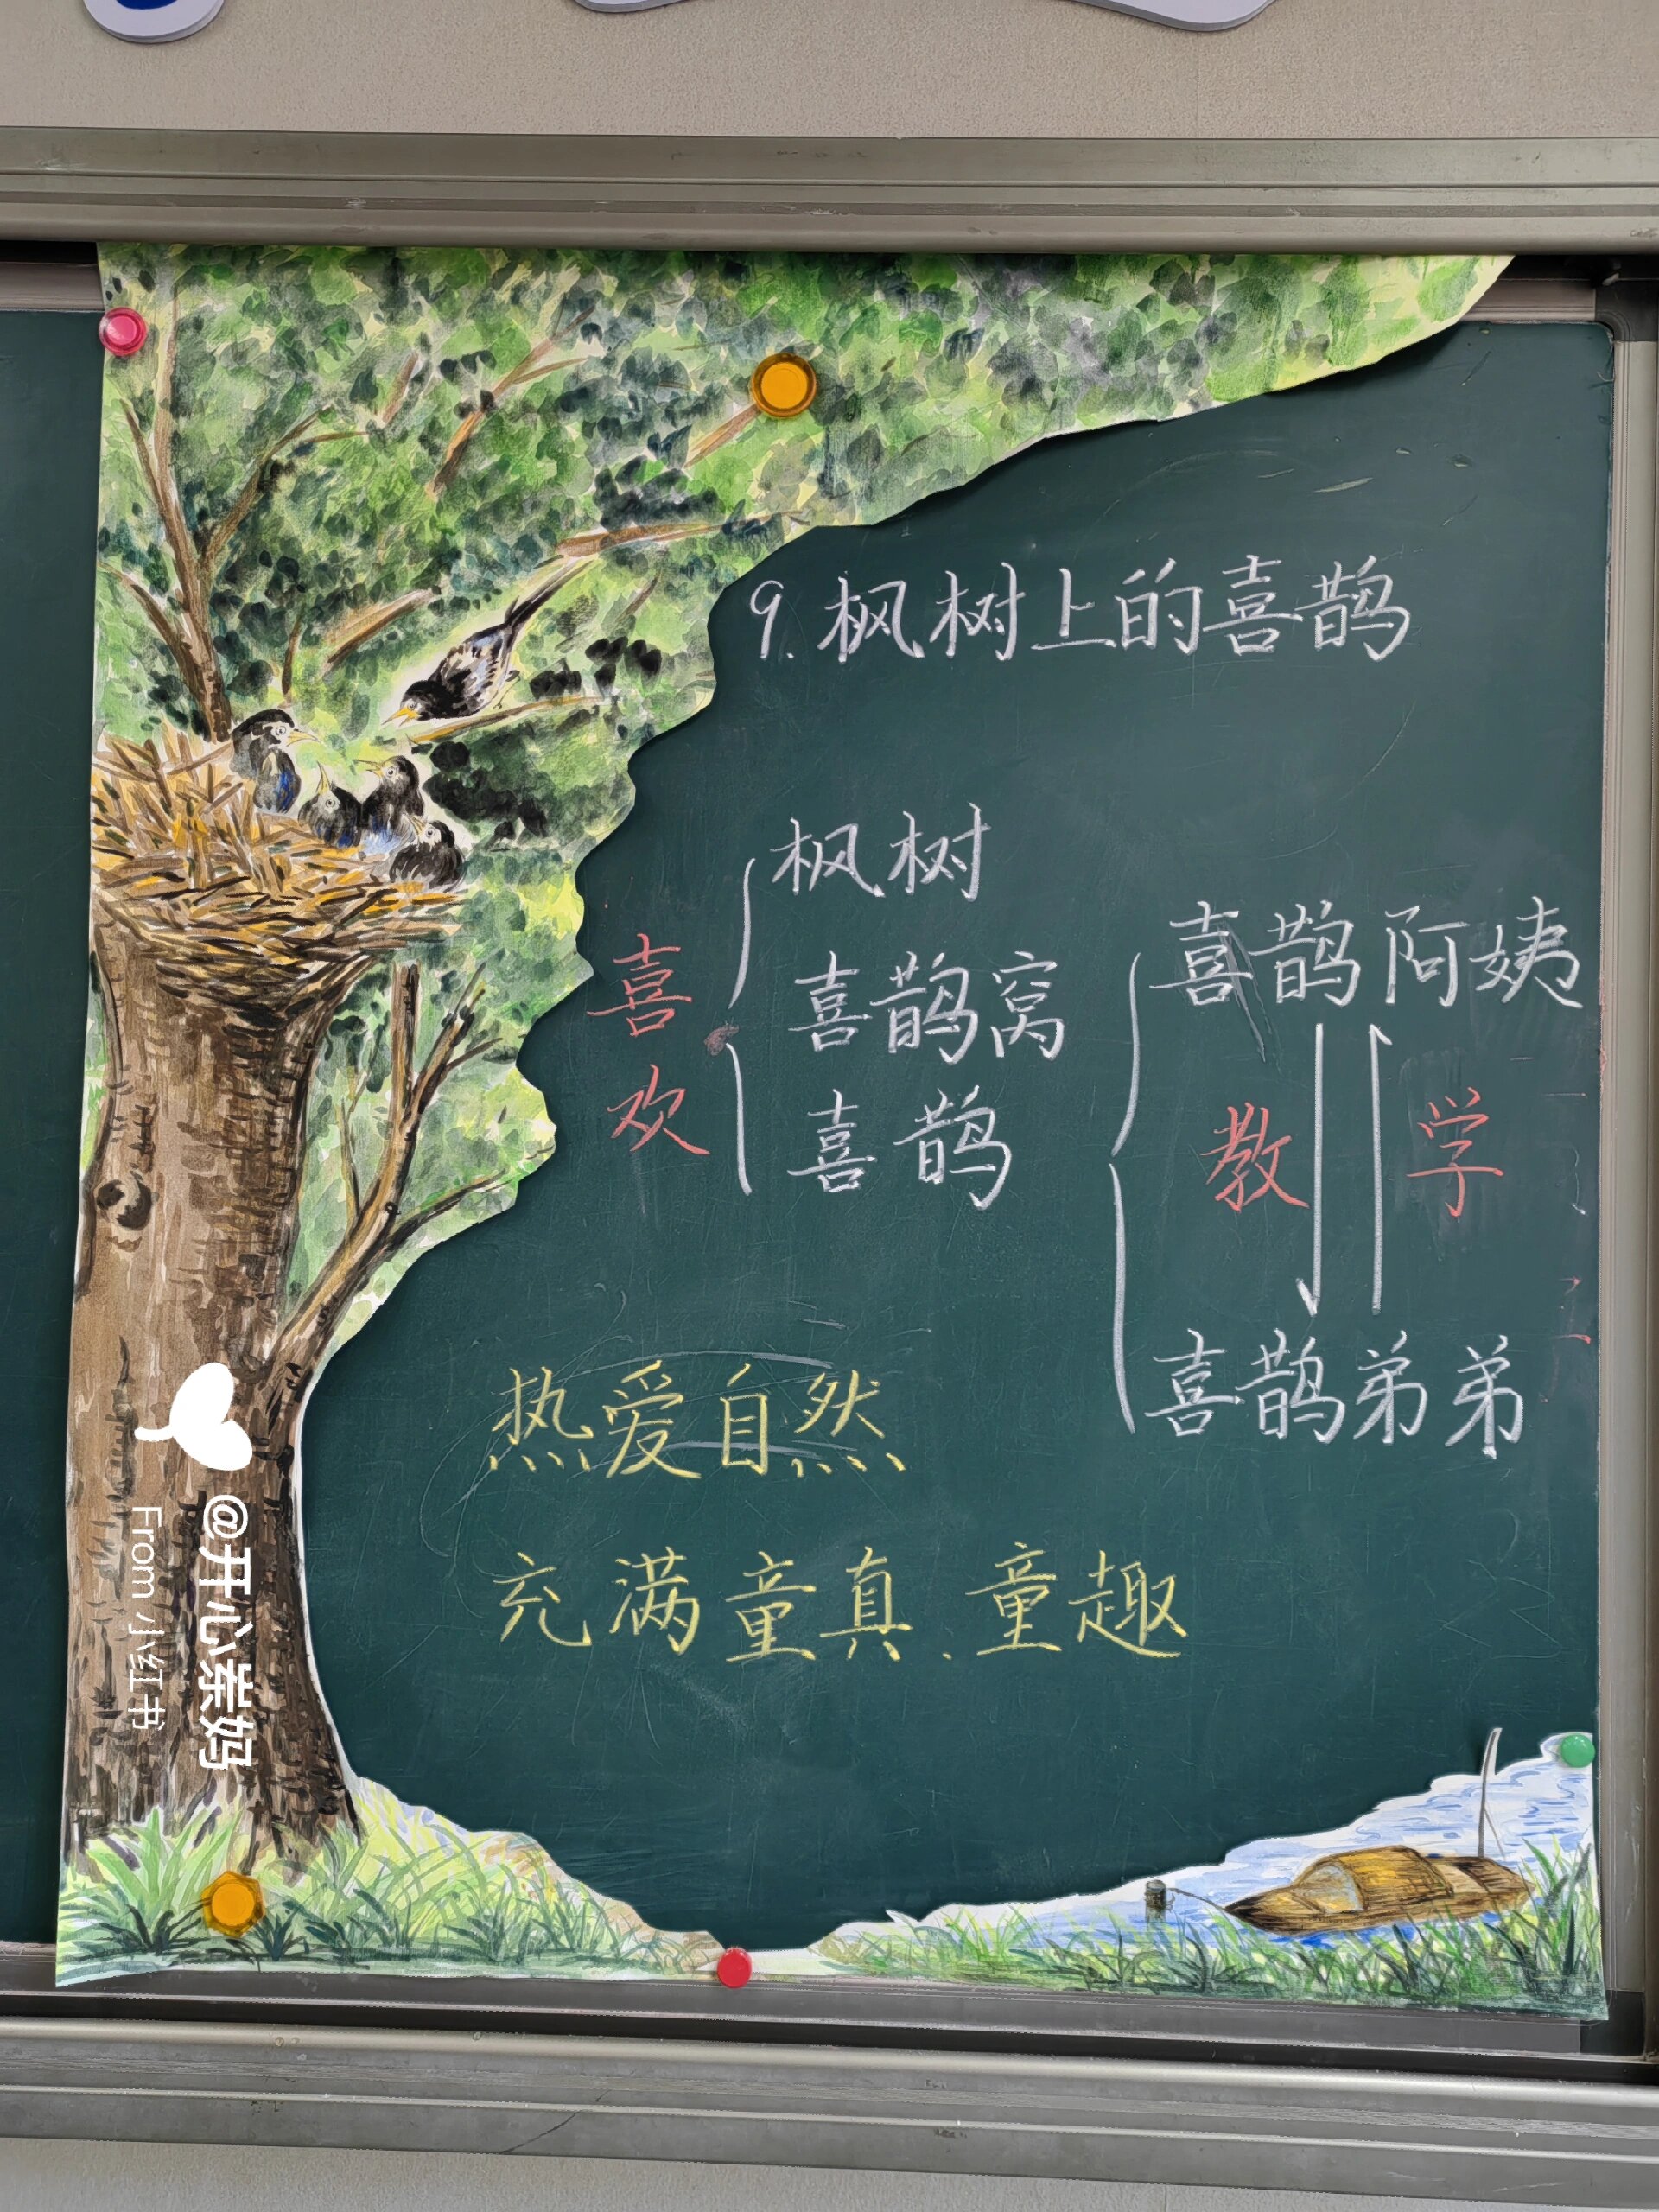 9. 枫树上的喜鹊
喜欢
枫树
喜鹊窝
喜鹊
喜鹊阿姨
教
学
喜鹊弟弟
热爱自然
充满童真、童趣
@开心棠妈
From 小红书